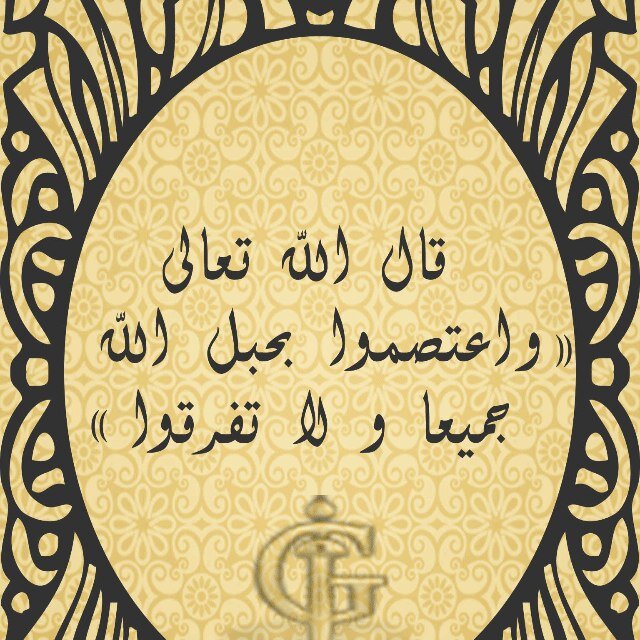 قال الله تعالى
(( واعتصموا بحبل الله
جميعا و لا تفرقوا ))